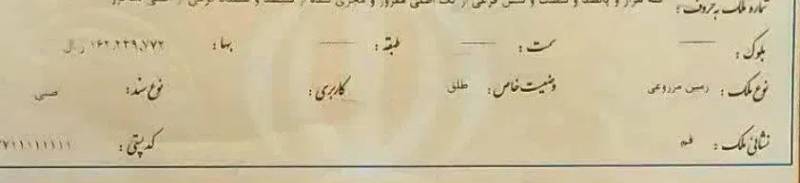 شماره ملک به حروف :
بلوک : سمت : طبقه : بها : ۱۶۲,۲۳۹,۷۷۲ ریال
نوع ملک : زمین مزروعی وضعیت خاص : طلق کاربری : نوع سند :
نشانی ملک : قم کد پستی : ۷۱۱۱۱۱۱۱۱۱